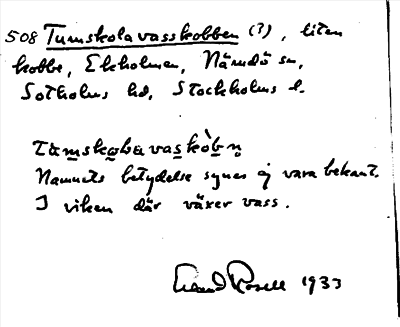 508 Tumskolavasskobben (?), liten
kobbe, Ekholmen, Nämdö sn,
Sotholms hd, Stockholms l.
Namnets betydelse synes ej vara bekant.
I viken där växer vass.
Rosell 1933